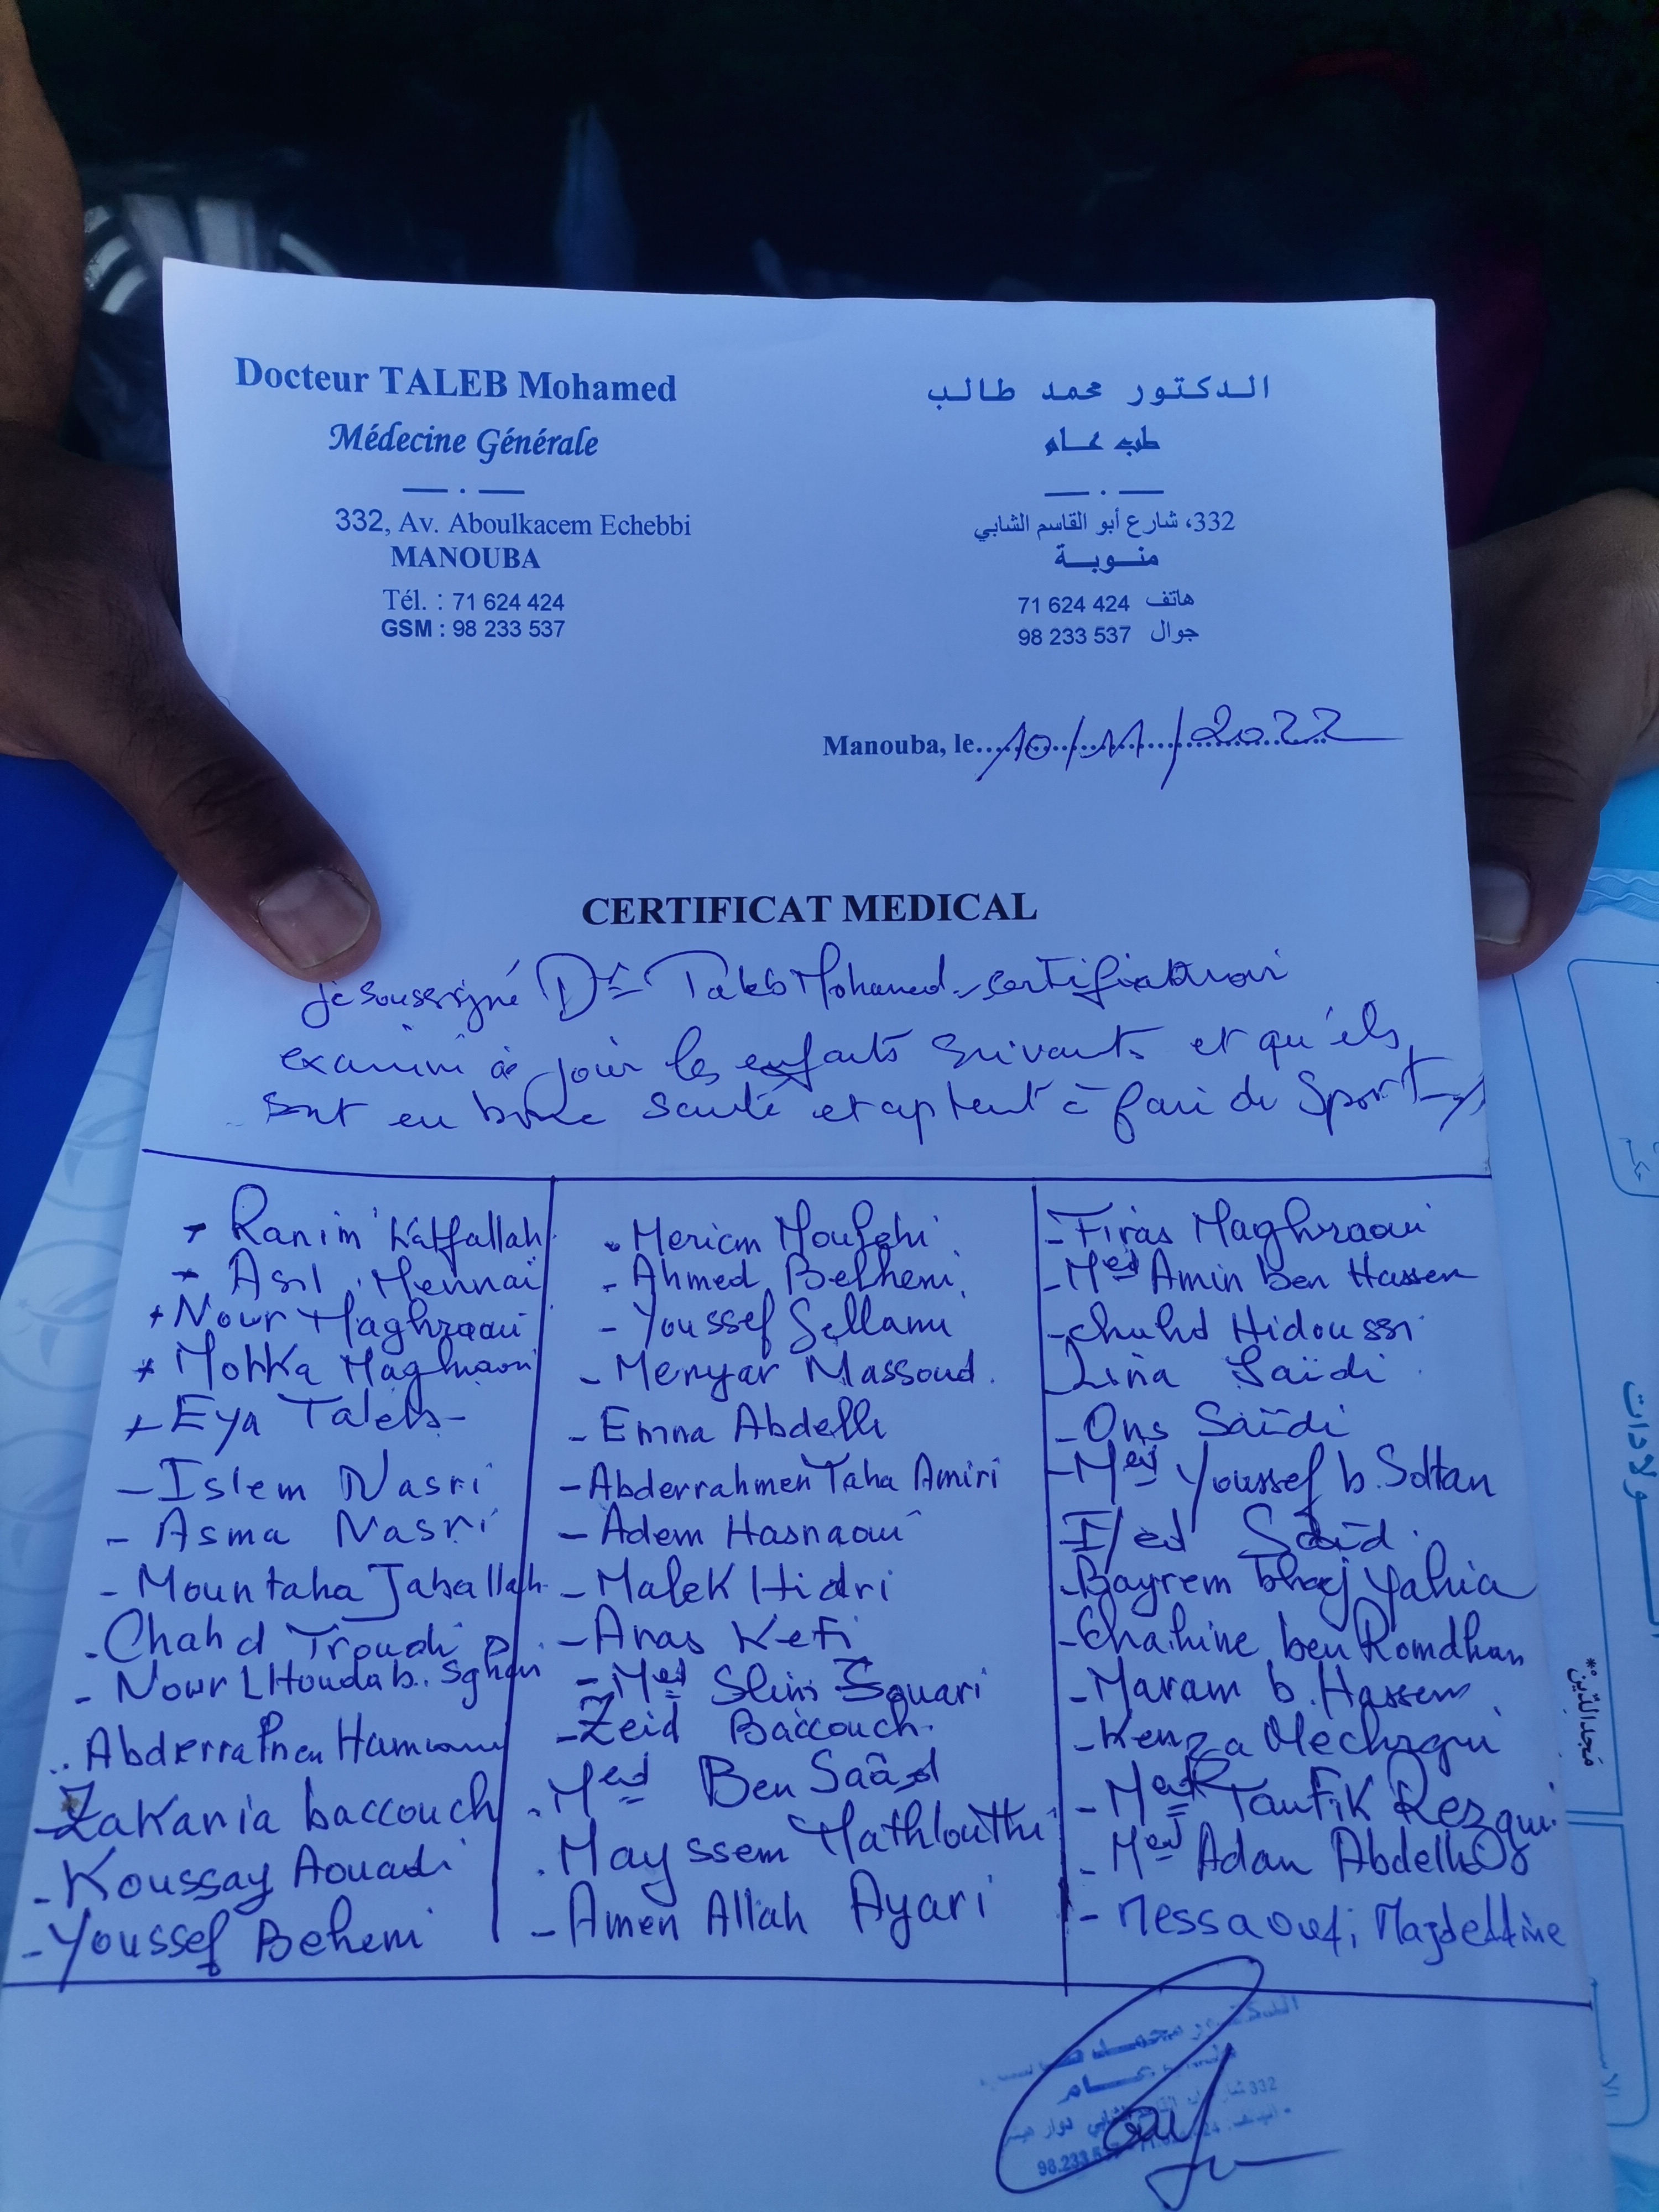 Docteur TALEB Mohamed
Médecine Générale
332, Av. Aboulkacem Echebbi
MANOUBA
Tél. : 71 624 424
GSM : 98 233 537
الدكتور محمد طالب
طب عام
332، شارع أبو القاسم الشابي
منوبة
هاتف 71 624 424
جوال 98 233 537
Manouba, le 10/11/2022
CERTIFICAT MEDICAL
je soussigné Dr Taleb Mohamed certifie avoir
examiné ce jour les enfants suivants et qu'ils
sont en bonne santé et aptent à faire du Sport
+ Ranim Katfallah
+ Asil Mennai
+ Nour Maghraoui
+ Mohka Maghraoui
+ Eya Taleb
- Islem Nasri
- Asma Nasri
- Mountaha Jaballah
- Chahd Troudi
- Nour LHouda b. Sghair
- Abderrahmen
- Zakaria baccouch
- Koussay Aouadi
- Youssef Behemi
- Meriem
- Ahmed Belhemi
- Youssef Sellami
- Menyar Massoud
- Emna Abdelli
- Abderrahmen Taha Amiri
- Adem Hasnaoui
- Malek Hidri
- Anas Kefi
- Med Slim Souari
- Zeid Baccouch
- Med Ben Saâd
- Mayssem Mathlouthi
- Amen Allah Ayari
- Firas Maghraoui
- Med Amin ben Hassen
- Chahd Hidoussi
Lina Saïdi
- Ons Saïdi
- Med Youssef b. Soltan
Saïd
- Bayrem bhaj Yahia
- Chahine ben Romdhan
- Maram b. Hassen
- Kenza Mechrgui
- Med Taufik Rezgui
- Med Adan Abdelli
- Messaoudi Majdeddine
332
98.233.537
ولادات
مجد الدين